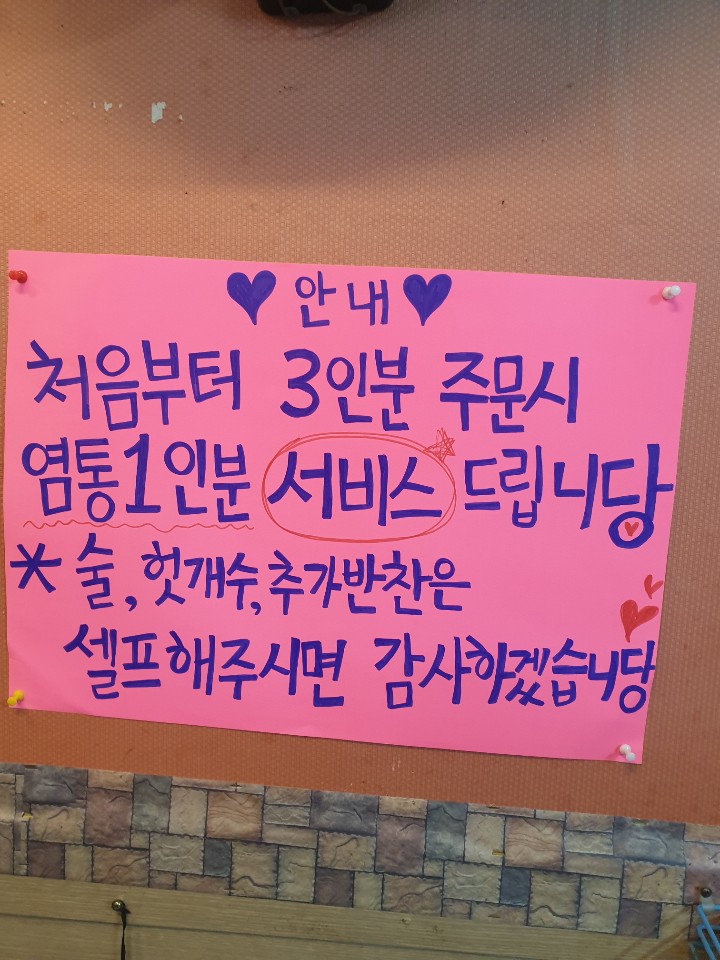 안내
처음부터 3인분 주문시
염통1인분 서비스 드립니당
* 술, 헛개수, 추가반찬은
셀프해주시면 감사하겠습니당